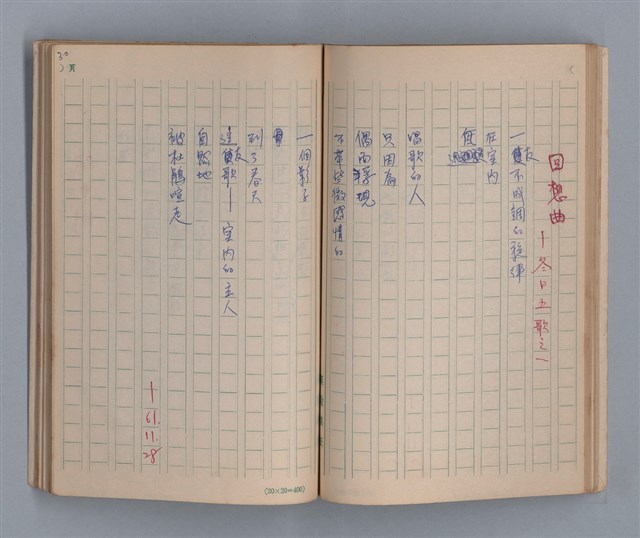 回想曲
—冬日五歌之一
一歌不成調的旋律
在室內
唱歌的人
只因為
偶而擾現
不帶些微感情的
一個影子
到了春天
這歌—室內的主人
自然地
被杜鵑喧走
—61.11.28
30
頁
(20×20=400)